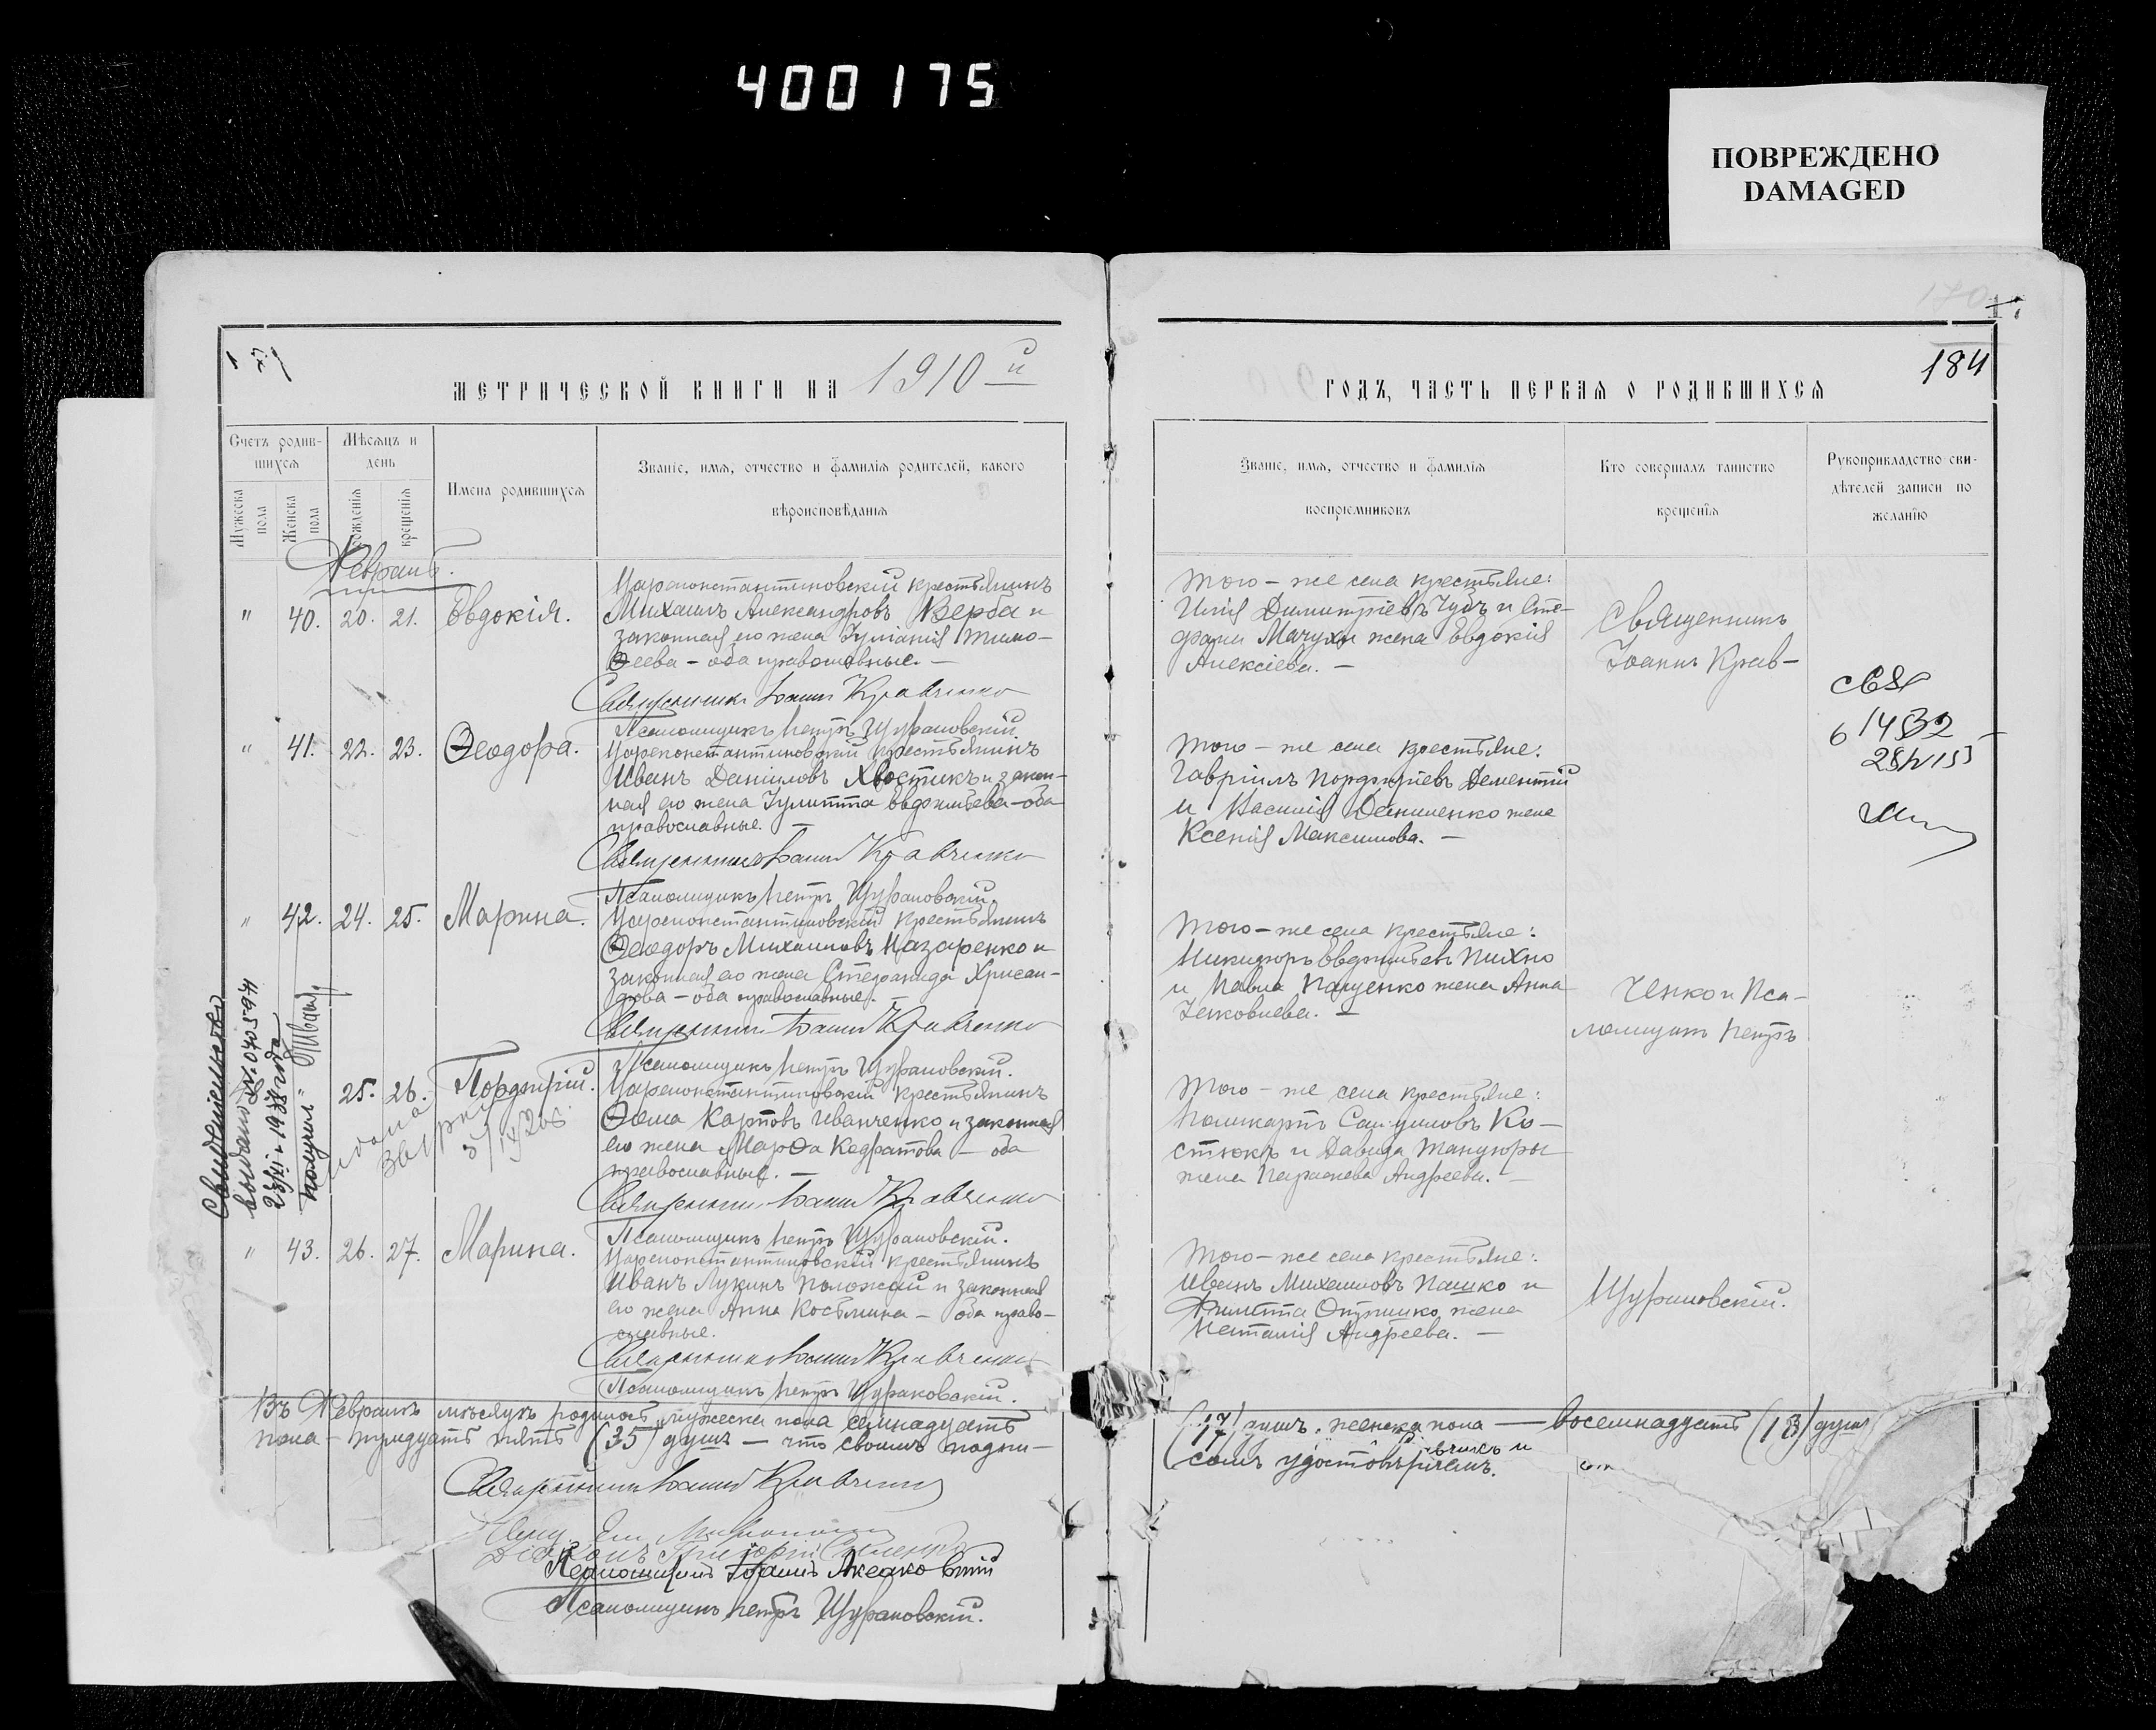 400175
ПОВРЕЖДЕНО
DAMAGED
184
МЕТРИЧЕСКОЙ КНИГИ НА 1910 й
ГОДЪ, ЧАСТЬ ПЕРВАЯ О РОДИВШИХСЯ
Счетъ родившихся
Мѣсяцъ и день
Имена родившихся
Званіе, имя, отчество и фамилія родителей, какого
вѣроисповѣданія
Мужеска пола
Женска пола
рожденія
крещенія
Званіе, имя, отчество и фамилія
воспріемниковъ
Кто совершалъ таинство
крещенія
Рукоприкладство сви-
дѣтелей записи по
желанію
Февраль.
" 40. 20. 21. Евдокія.
Цареконстантиновскій крестьянинъ
Михаилъ Александровъ Верба и
законная его жена Іуліанія Тимо-
ѳеева - оба православные. -
Священникъ Іоаннъ Кравченко
Псаломщикъ Петръ Щурановскій.
Того - же села крестьяне:
Илія Димитріевъ Чубъ и Сте-
фана Мачухи жена Евдокія
Алексіева. -
Священникъ
Іоаннъ Крав-
" 41. 22. 23. Ѳеодора.
Цареконстантиновскій крестьянинъ
Иванъ Даніиловъ Хвостикъ и закон-
ная его жена Іулитта Евфиміева - оба
православные. -
Священникъ Іоаннъ Кравченко
Псаломщикъ Петръ Щурановскій.
Того - же села крестьяне:
Гавріилъ Порфиріевъ Дементій
и Василія Данименко жена
Ксенія Максимова. -
" 42. 24. 25. Марина.
Цареконстантиновскій крестьянинъ
Ѳеодоръ Михаиловъ Назаренко и
законная его жена Стефанида Хрисан-
фова - оба православные. -
Священникъ Іоаннъ Кравченко
Псаломщикъ Петръ Щурановскій.
Того - же села крестьяне:
Никифоръ Евфиміевъ Пихно
и Павла Пащенко жена Анна
Іаковлева. -
ченко и Пса-
ломщикъ Петръ
25. 26. Порфирій.
Цареконстантиновскій крестьянинъ
Ѳома Карповъ Иванченко и законная
его жена Марѳа Кодратова - оба
православные. -
Священникъ Іоаннъ Кравченко
Псаломщикъ Петръ Щурановскій.
Того - же села крестьяне:
Поликарпъ Самуиловъ Ко-
стюкъ и Давида Танцюры
жена Параскева Андреева. -
Свидетельство
выдано
№ 040597
1938 года
получил
" 43. 26. 27. Марина.
Цареконстантиновскій крестьянинъ
Иванъ Лукинъ Положай и законная
его жена Анна Косьмина - оба право-
славные.
Священникъ Іоаннъ Кравченко
Псаломщикъ Петръ Щурановскій.
Того - же села крестьяне:
Иванъ Михаиловъ Пашко и
Филиппа Опришко жена
Наталія Андреева. -
Щурановскій.
Въ Февралѣ мѣсяцѣ родилось мужеска пола семнадцать
(17) душъ, женска пола - восемнадцать (18) душъ
пола - тридцать пять (35) душъ - что своимъ подпи-
сомъ удостовѣряемъ.
Священникъ Іоаннъ Кравченко
Діаконъ Григорій
Псаломщикъ Іоаннъ
Псаломщикъ Петръ Щурановскій.